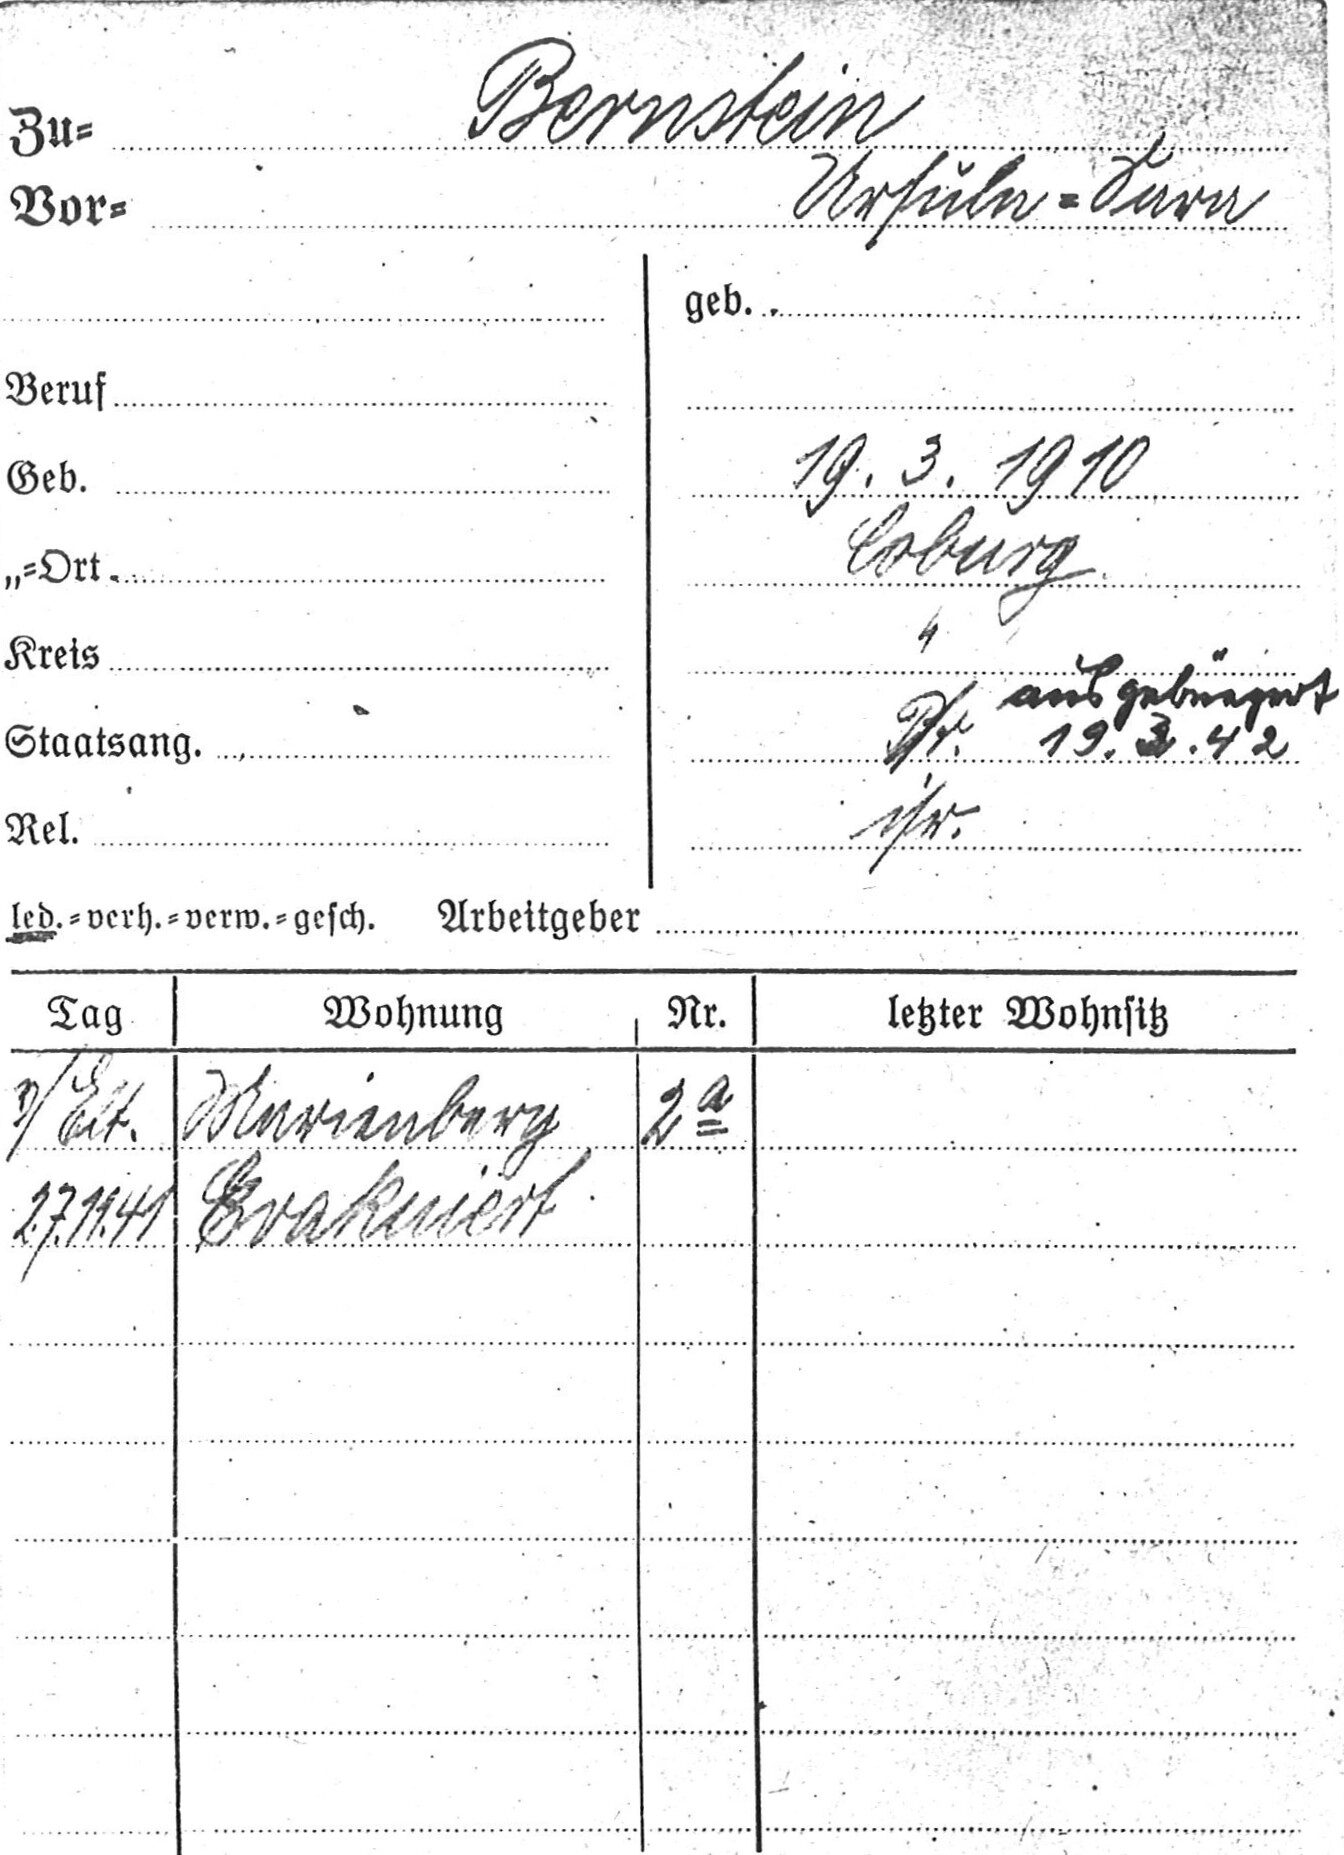 Zu= Bernstein
Vor= Ursula=Sara
geb.
Beruf
Geb. 19. 3. 1910
„=Ort Coburg
Kreis "
ausgebürgert
Staatsang. Pr. 19. 3. 42
Rel. isr.
led.=verh.=verw.=gesch. Arbeitgeber
Tag Wohnung Nr. letzter Wohnsitz
v/ Elt. Marienberg 2a
27.11.41 Evakuiert